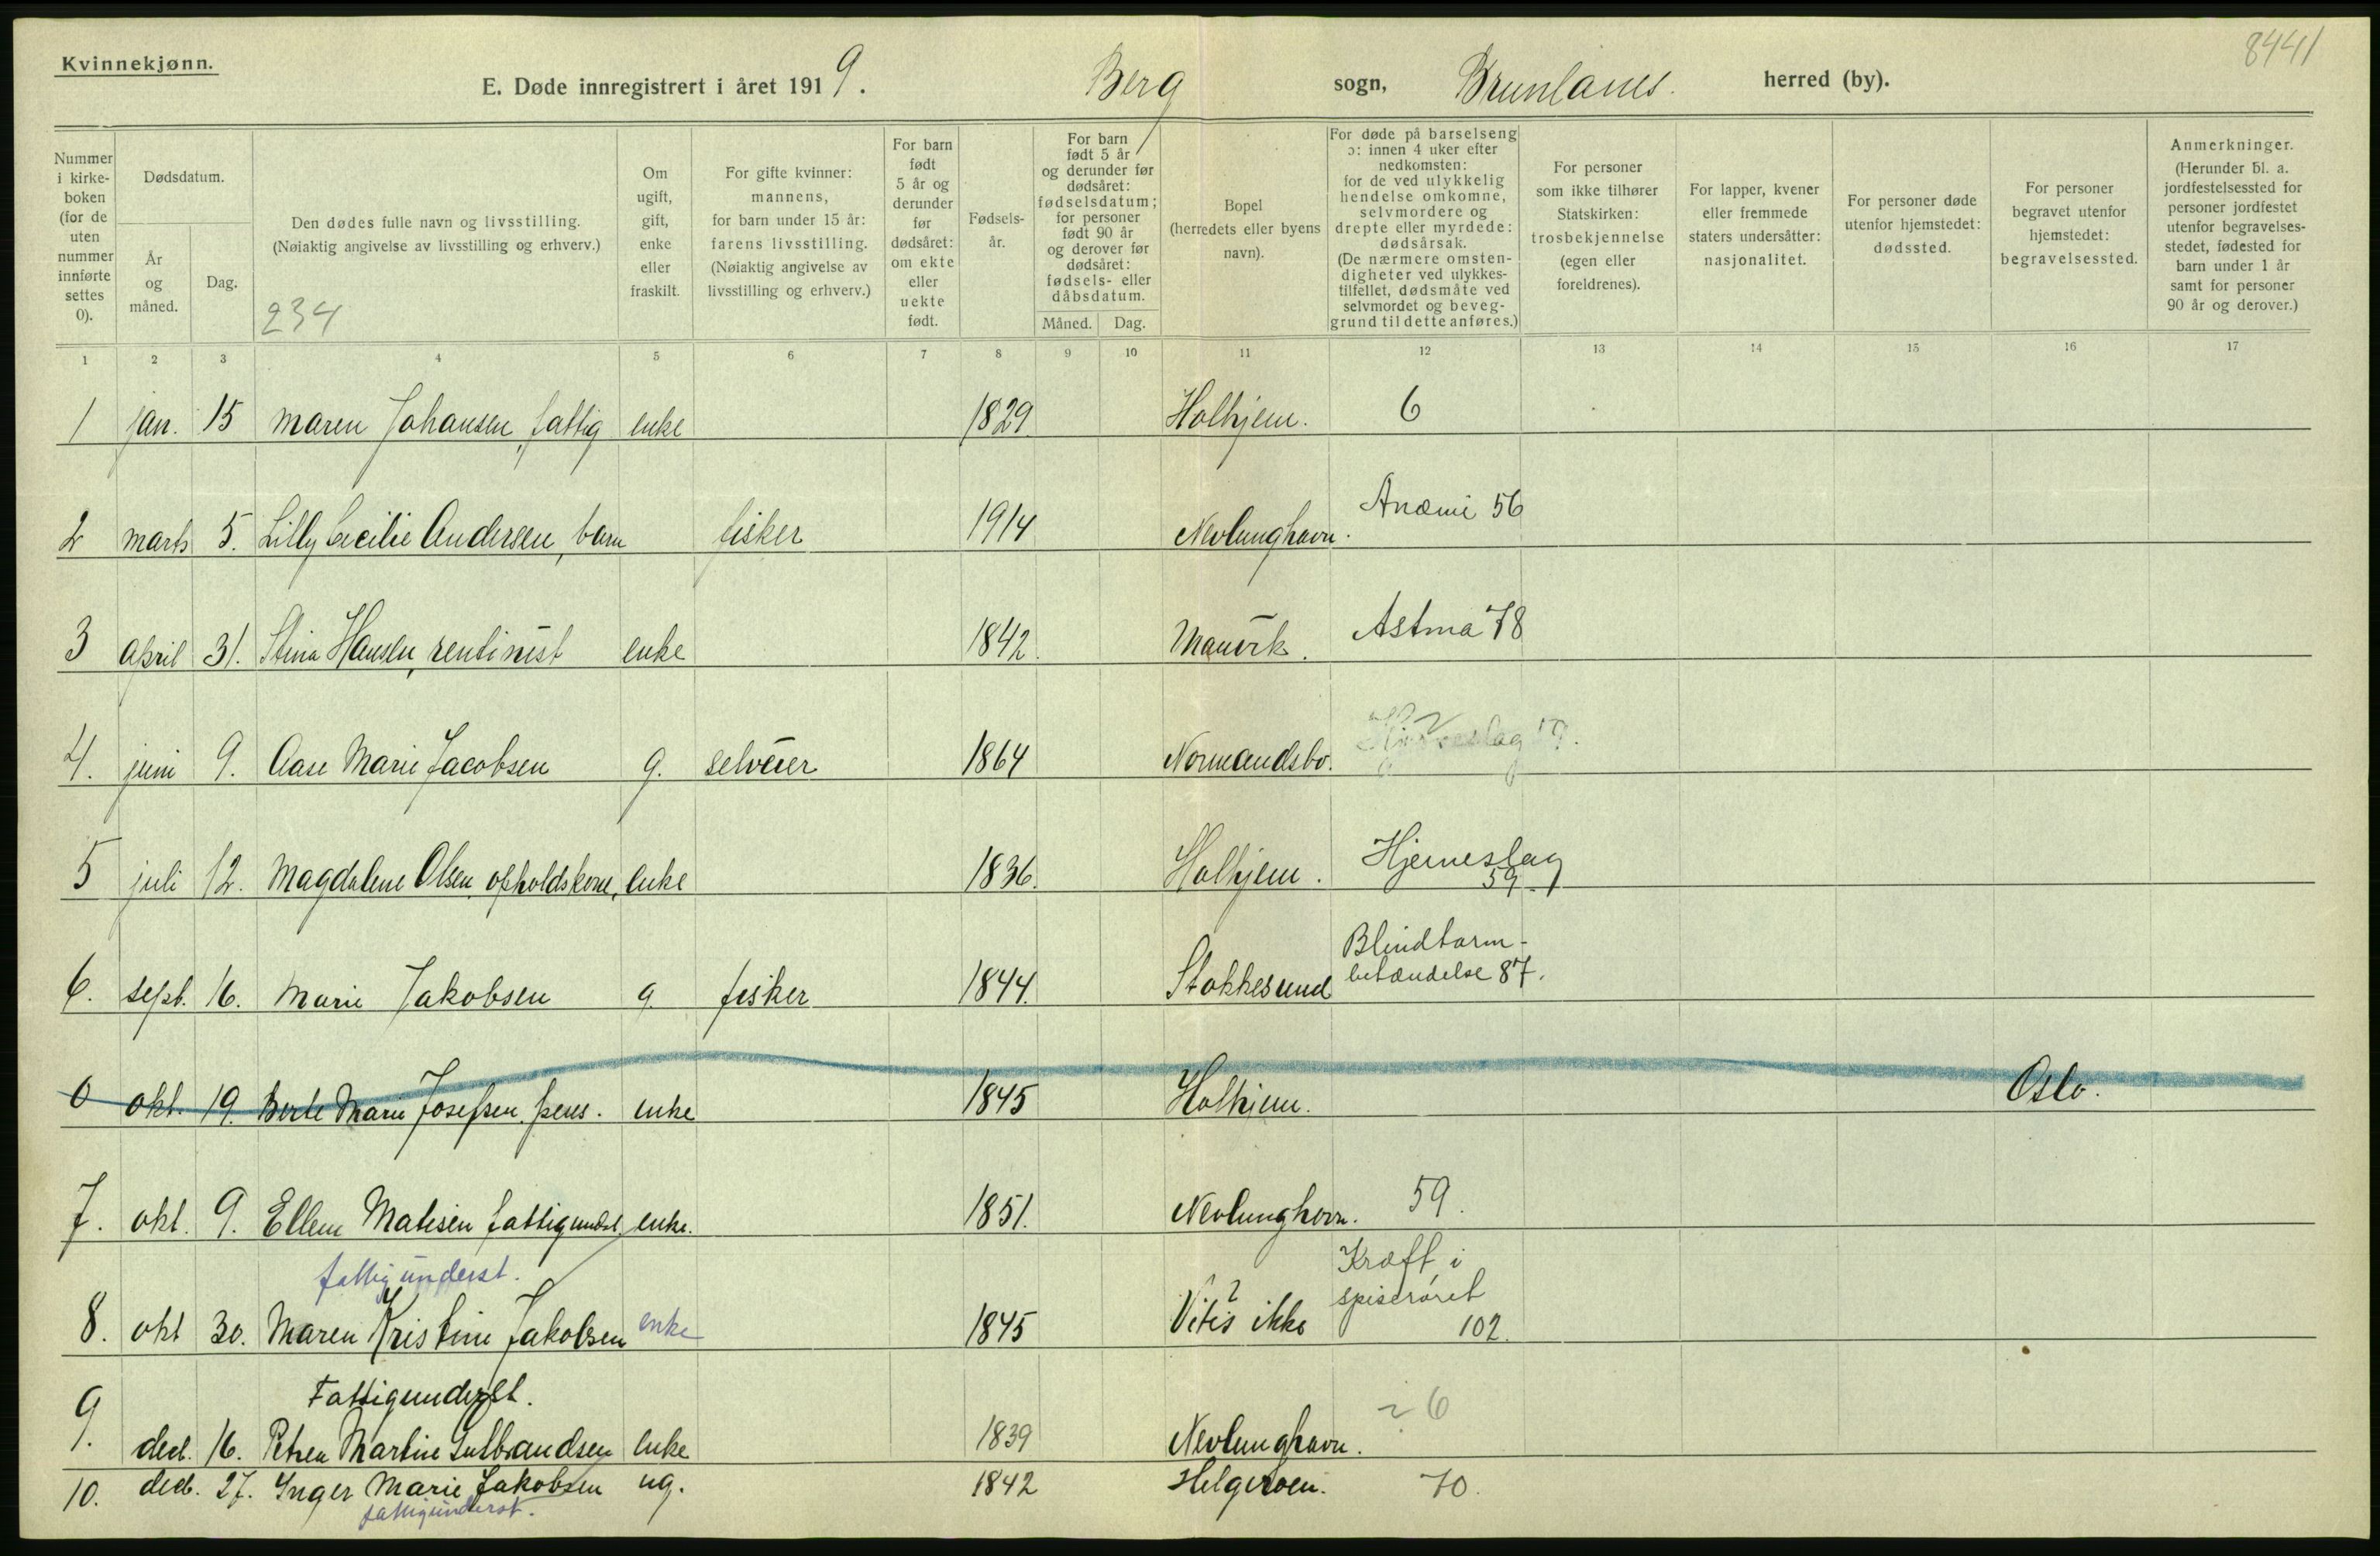 8441
Kvinnekjønn.
E. Døde innregistrert i året 1919. Berg sogn, Brunlanes. herred (by).
Nummer i kirkeboken (for de uten nummer innførte settes 0).
Dødsdatum.
År og måned.
Dag.
Den dødes fulle navn og livsstilling.
(Nøiaktig angivelse av livsstilling og erhverv.)
234
Om ugift, gift, enke eller fraskilt.
For gifte kvinner: mannens, for barn under 15 år: farens livsstilling. (Nøiaktig angivelse av livsstilling og erhverv.)
For barn født 5 år og derunder før dødsåret: om ekte eller uekte født.
Fødsels-år.
For barn født 5 år og derunder før dødsåret: fødselsdatum; for personer født 90 år og derover før dødsåret: fødsels- eller dåbsdatum.
Måned. Dag.
Bopel (herredets eller byens navn).
For døde på barselseng ɔ: innen 4 uker efter nedkomsten: for de ved ulykkelig hendelse omkomne, selvmordere og drepte eller myrdede: dødsårsak. (De nærmere omstendigheter ved ulykkestilfellet, dødsmåte ved selvmordet og beveggrund til dette anføres.)
For personer som ikke tilhører Statskirken: trosbekjennelse (egen eller foreldrenes).
For lapper, kvener eller fremmede staters undersåtter: nasjonalitet.
For personer døde utenfor hjemstedet: dødssted.
For personer begravet utenfor hjemstedet: begravelsessted.
Anmerkninger. (Herunder bl. a. jordfestelsessted for personer jordfestet utenfor begravelsesstedet, fødested for barn under 1 år samt for personer 90 år og derover.)
1 2 3 4 5 6 7 8 9 10 11 12 13 14 15 16 17
1 jan. 15 Maren Johansen, fattig enke 1829. Holhjem. 6
2 marts 5. Lilly Cecilie Andersen, barn fisker 1914 Nevlunghavn. Anæmi 56
3 april 31. Stina Hansen, rentinist enke 1842. Manvik. Astma 78
4. juni 9. Aase Marie Jacobsen g. selveier 1864 Normandsbo.
5 juli 12. Magdalene Olsen, opholdskone, enke 1836. Holhjem. Hjerneslag 59
6. sept. 16. Marie Jakobsen g. fisker 1844. Stokkesund Blindtarm-betændelse 87.
0 okt. 19. Berte Marie Josefsen. pens. enke 1845 Holhjem. Oslo.
7. okt. 9. Ellen Matisen fattigundst. enke. 1851. Nevlunghavn. 59.
fattigunderst.
8. okt 30. Maren Kristine Jakobsen enke 1845 Vites ikke Kræft i spiserøret 102.
Fattigunderst.
9. ded. 16. Petrea Martine Gulbrandsen enke 1839 Nevlunghavn. 6
10. ded. 27. Inger Marie Jakobsen ug. 1842 Helgeroen. 70.
fattigunderst.